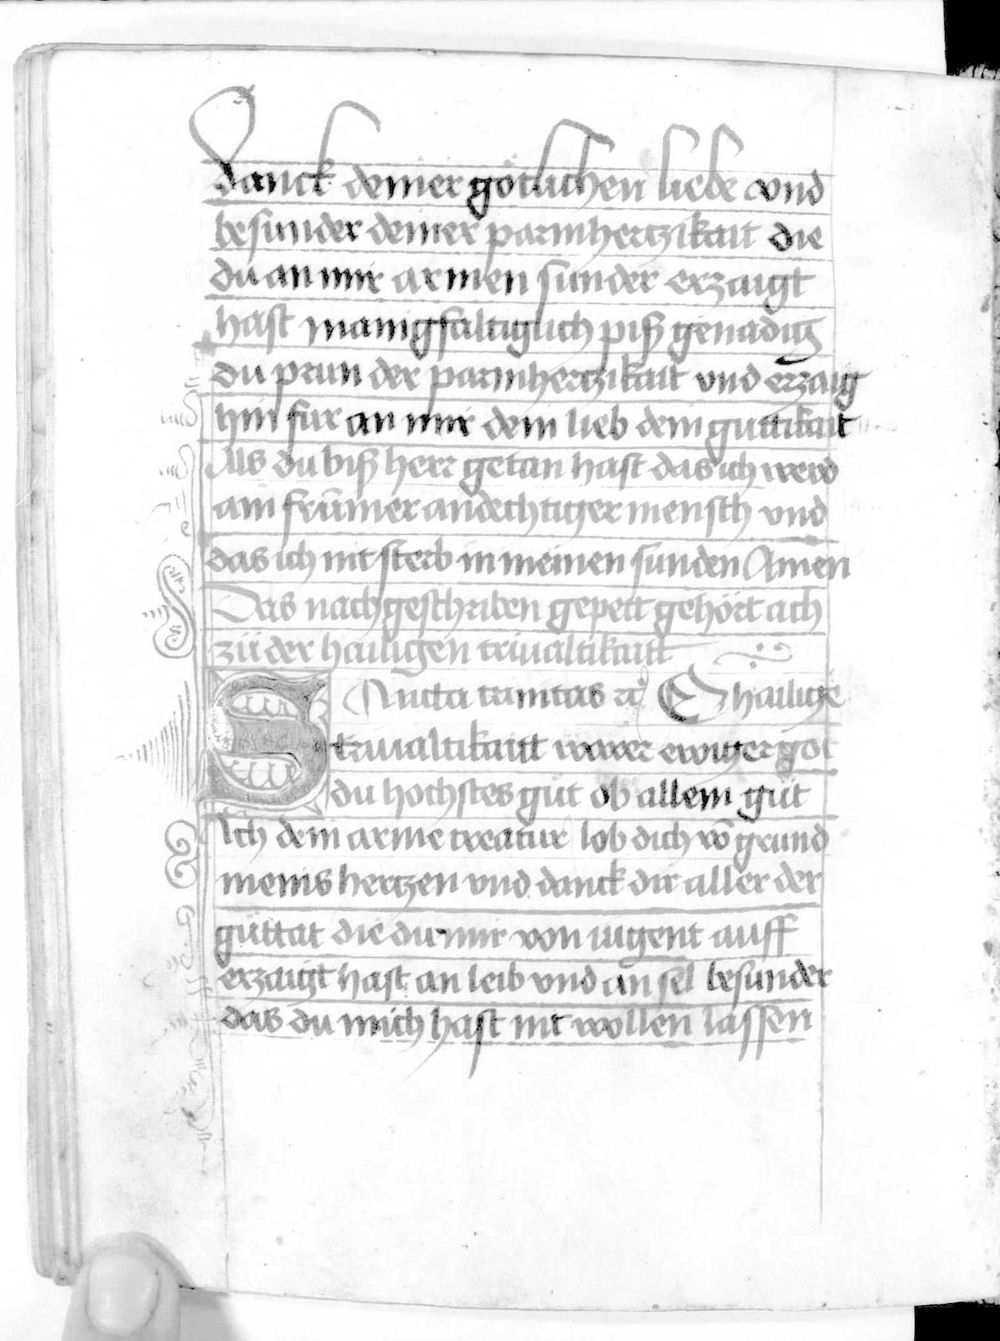 danck deiner götlichen liebe vnd
besunder deiner parmhertzikait die
du an mir armen sunder erzaigt
hast manigfaltiglich piß genadig
du prun der parmhertzikait vnd erzaig
hin fur an mir dein lieb dein guttikait
Als du biß herr getan hast das ich werd
ain frumer andechtiger mensch vnd
das ich nit sterb in meinen sunden Amen
Das nachgeschriben gepett gehört ach
zü der hailigen triualtikaitt
SAncta trinitas ꝛc O hailige
triualtikaitt warer ewiger got
du hochstes güt ob allem güt
Ich dein arme creatur lob dich vō grund
meins hertzen vnd danck dir aller der
güttat die du mir von iugent auff
erzaigt hast an leib vnd an sel besunder
das du mich hast nit wollen lassen